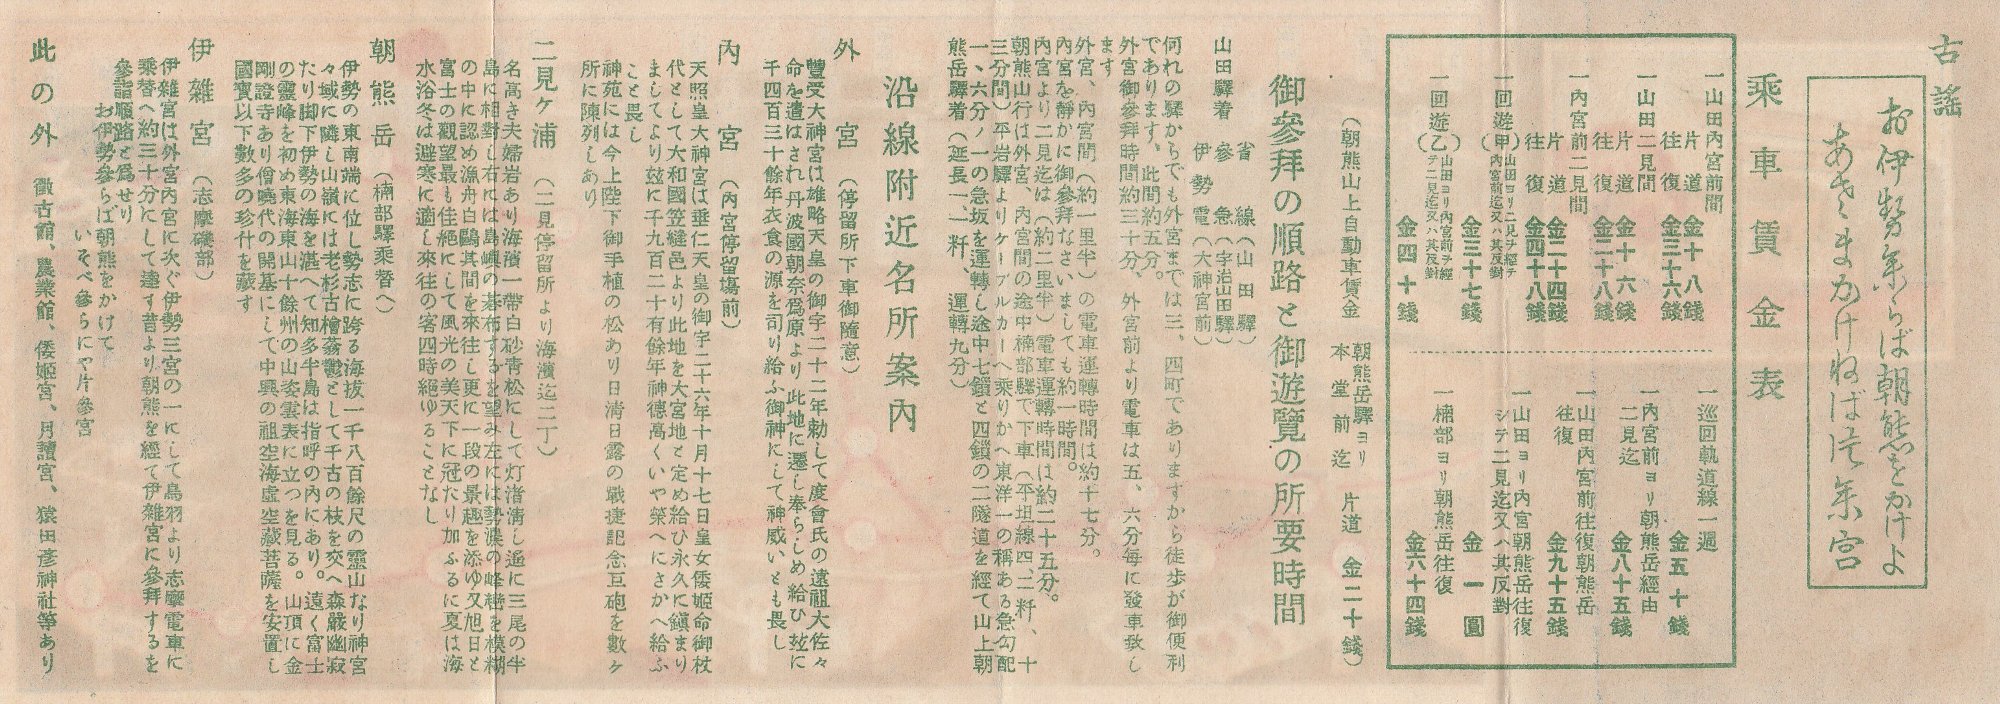 古謠
お伊勢參らば朝熊をかけよ
あさまかけねば片參宮
乘車賃金表
一山田内宮前間
片道 金十八錢
往復 金三十六錢
一山田二見間
片道 金十六錢
往復 金二十八錢
一内宮前二見間
片道 金二十四錢
往復 金四十八錢
一回遊(甲)山田ヨリ二見ヲ經テ内宮前迄又ハ其反對
金三十七錢
一回遊(乙)山田ヨリ内宮前ヲ經テ二見迄又ハ其反對
金四十錢
一巡回軌道線一週
金五十錢
一内宮前ヨリ朝熊岳經由
二見迄
金八十五錢
一山田内宮前往復朝熊岳
往復
金九十五錢
一山田ヨリ内宮朝熊岳往復
シテ二見迄又ハ其反對
金一圓
一楠部ヨリ朝熊岳往復
金六十四錢
(朝熊山上自動車賃金 朝熊岳驛ヨリ
本堂前迄 片道 金二十錢)
御參拜の順路と御遊覽の所要時間
省線(山田驛)
山田驛着 參急(宇治山田驛)
伊勢電(大神宮前)
何れの驛からでも外宮までは三、四町でありますから徒歩が御便利
であります、此間約五分。
外宮御參拜時間約三十分、外宮前より電車は五、六分毎に發車致し
ます
外宮、内宮間(約一里半)の電車運轉時間は約十七分。
内宮を靜かに御參拜なさいましても約一時間。
内宮より二見迄は(約二里半)電車運轉時間は約二十五分。
朝熊山行は外宮、内宮間の途中楠部驛で下車(平坦線四、二粁、十
三分間)平岩驛よりケーブルカーへ乘りかへ東洋一の稱ある急勾配
一、六分ノ一の急坂を運轉し途中七鎖と四鎖の二隧道を經て山上朝
熊岳驛着(延長一、一粁、運轉九分)
沿線附近名所案内
外宮(停留所下車御隨意)
豐受大神宮は雄略天皇の御宇二十二年勅して度會氏の遠祖大佐々
命を遣はされ丹波國朝奈爲原より此地に遷し奉らしめ給ひ玆に
千四百三十餘年衣食の源を司り給ふ御神にして神威いとも畏し
内宮(内宮停留場前)
天照皇大神宮は垂仁天皇の御宇二十六年十月十七日皇女倭姬命御杖
代として大和國笠縫邑より此地を大宮地と定め給ひ永久に鎭まり
ましてより玆に千九百二十有餘年神德高くいや榮へにさかへ給ふ
こと畏し
神苑には今上陛下御手植の松あり日淸日露の戰捷記念巨砲を數ヶ
所に陳列しあり
二見ヶ浦(二見停留所より海濱迄二丁)
名高き夫婦岩あり海濱一帶白砂靑松にして灯渚淸し遙に三尾の半
島に相對し右には島嶼の碁布するを望み左には勢濃の峰巒を模糊
の中に認め漁舟白鷗其間を來往し更に一段の景趣を添ゆ又旭日と
富士の觀望最も佳絕にして風光の美天下に冠たり加ふるに夏は海
水浴冬は避寒に適し來往の客四時絕ゆることなし
朝熊岳(楠部驛乘替へ)
伊勢の東南端に位し勢志に跨る海拔一千八百餘尺の靈山なり神宮
々域に隣し山嶺には老杉古檜蓊鬱として千古の枝を交へ森嚴幽寂
たり脚下伊勢の海を湛へて知多半島は指呼の内にあり。遠く富士
の靈峰を初め東海東山十餘州の山姿雲表に立つを見る。山頂に金
剛證寺あり僧曉代の開基にして中興の祖空海虛空藏菩薩を安置し
國寶以下數多の珍什を藏す
伊雜宮(志摩磯部)
伊雜宮は外宮内宮に次ぐ伊勢三宮の一にして鳥羽より志摩電車に
乘替へ約三十分にして達す昔より朝熊を經て伊雜宮に參拜するを
參詣順路と爲せり
お伊勢參らば朝熊をかけて
いそべ參らにや片參宮
此の外 徵古館、農業館、倭姬宮、月讀宮、猿田彥神社等あり